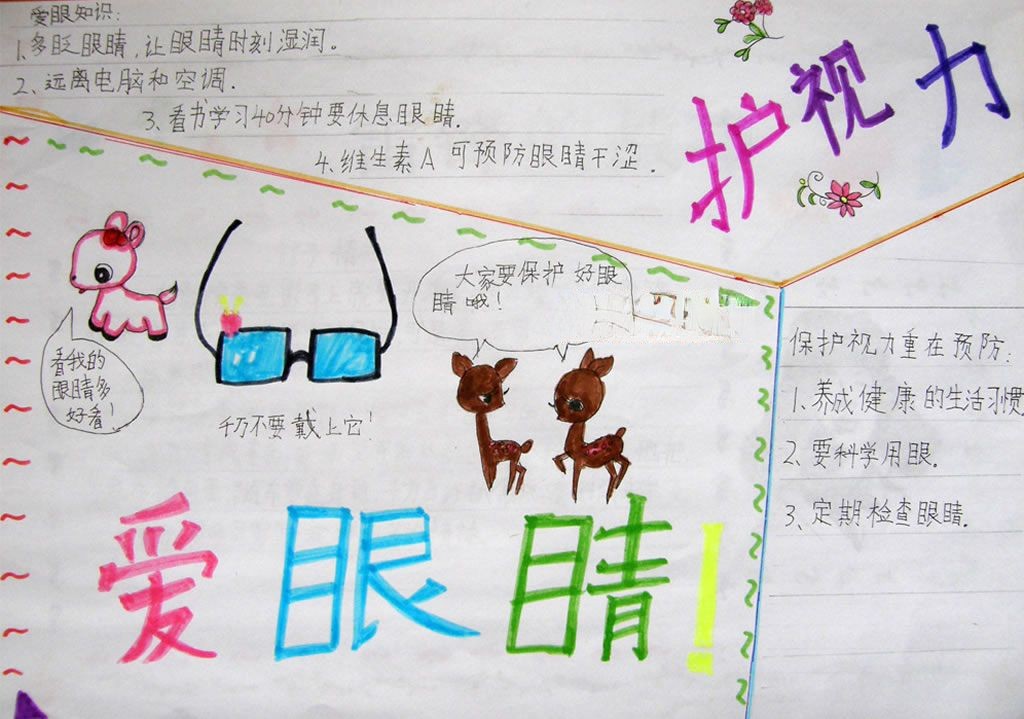 爱眼知识:
1、多眨眼睛,让眼睛时刻湿润。
2、远离电脑和空调.
3、看书学习40分钟要休息眼睛.
4、维生素A可预防眼睛干涩.
护视力
看我的
眼睛多
好看!
千万不要戴上它!
大家要保护好眼
睛哦!
爱眼睛!
保护视力重在预防:
1、养成健康的生活习惯
2、要科学用眼.
3、定期检查眼睛.